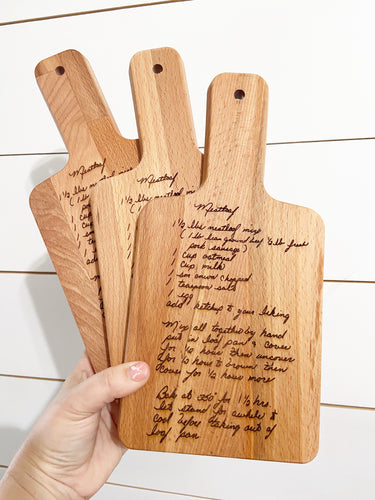 Meatloaf
1½ lbs meatloaf mix
(1 lb lean ground beef ½ lb fresh
pork sausage)
1 cup oatmeal
1 cup milk
1 sm onion chopped
1 teaspoon salt
1 egg
add ketchup to your liking
Mix all together by hand
put in loaf pan & cover
for ½ hour then uncover
for ½ hour to brown then
Cover for ½ hour more
Bake at 350° for 1½ hrs.
let stand for awhile to
cool before taking out of
loaf pan
Meatloaf
1½ lbs
Meatloaf
1½ lbs meatloaf